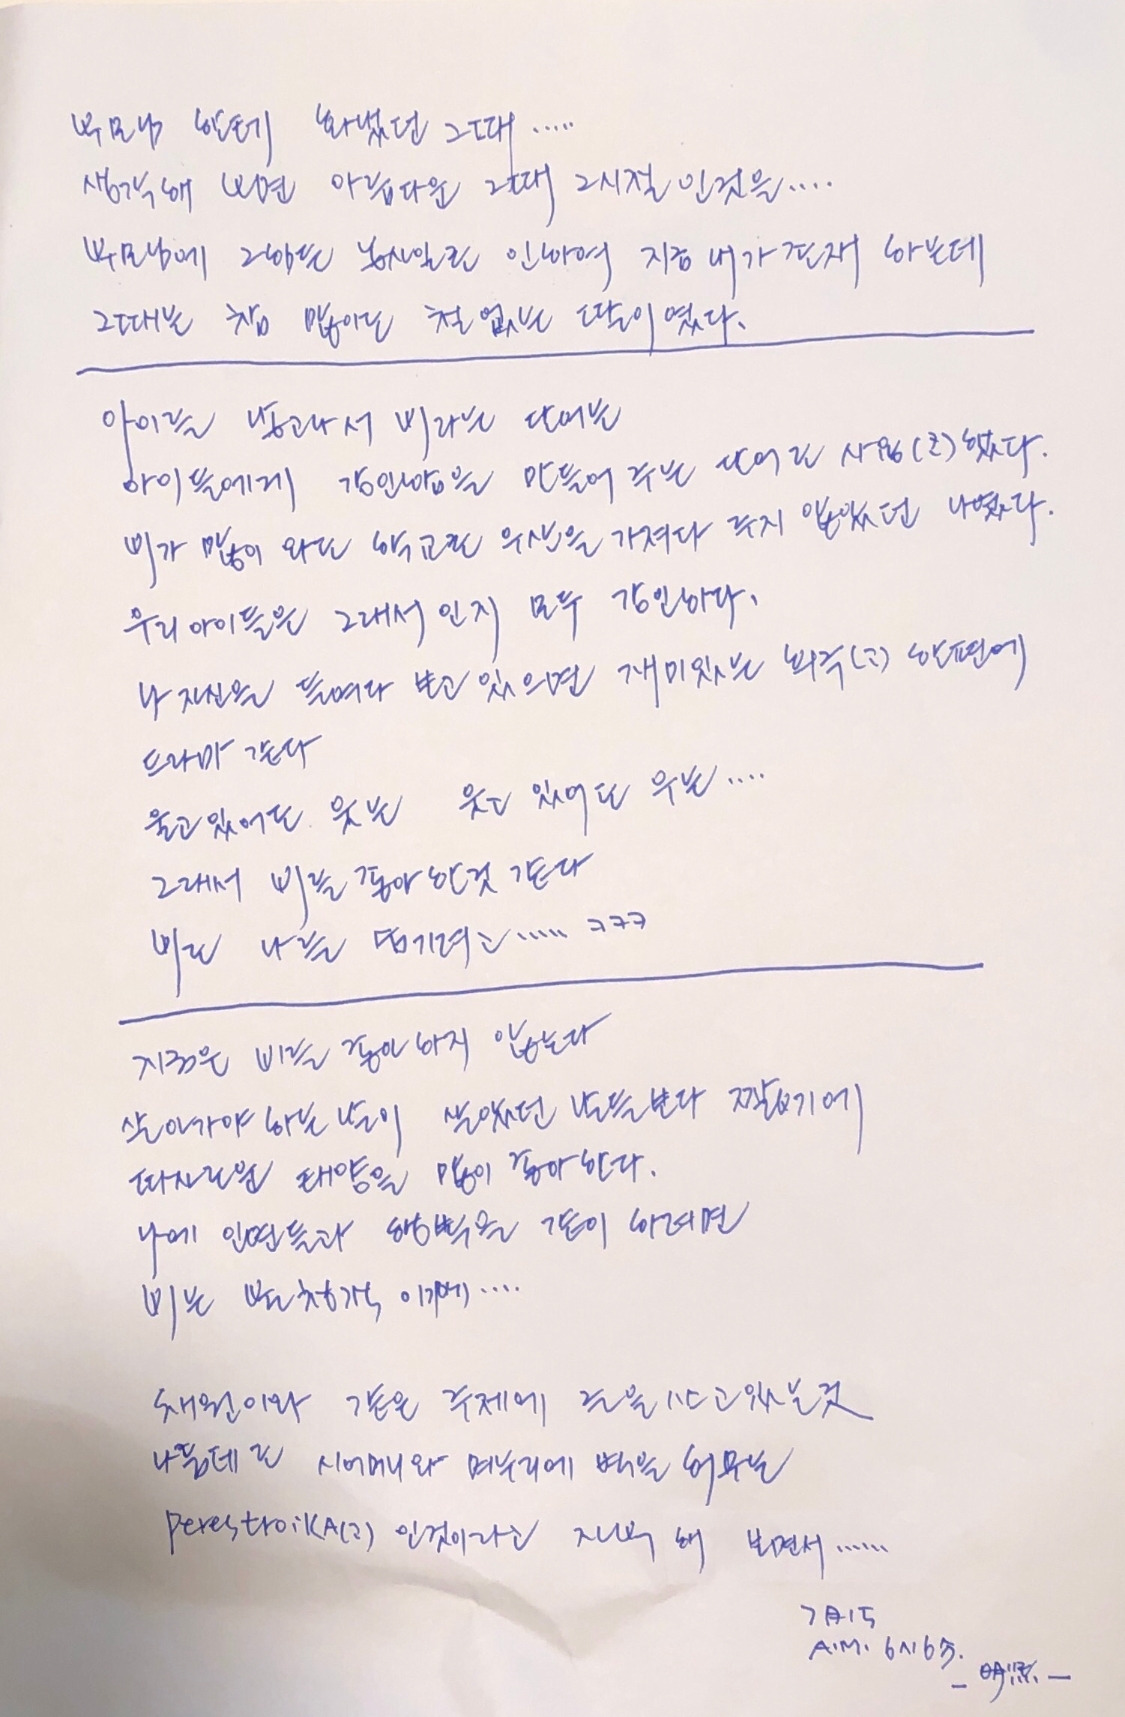 부모님 한테 화냈던 그때.....
생각해 보면 아름다운 그때 그시절 인것을....
부모님에 그 힘든 농사일로 인하여 지금 내가 존재 하는데
그때는 참 많이도 철 없는 딸이였다.
아이를 낳고나서 비라는 단어는
아이들에게 강인함을 만들어 주는 단어로 사용(?)했다.
비가 많이 와도 학교로 우산을 가져다 주지 않았던 나였다.
우리아이들은 그래서 인지 모두 강인하다.
나 자신을 들여다 보고 있으면 재미있는 희극(?) 한편에
드라마 같다
울고있어도 웃는 웃고 있어도 우는....
그래서 비를 좋아 한것 같다
비로 나를 숨기려고..... ㅋㅋㅋ
지금은 비를 좋아 하지 않는다
살아가야 하는 날이 살았던 날들보다 짧기에
따사로운 태양을 많이 좋아 한다.
나에 인연들과 행복을 같이 하려면
비는 불청객 이기에....
채원이와 같은 주제에 글을 쓰고있는것
나름데로 시어머니와 며누리에 벽을 허무는
PerestroiKA(?) 인것이라고 자부 해 보면서......
7月15
A.M. 6시6分.